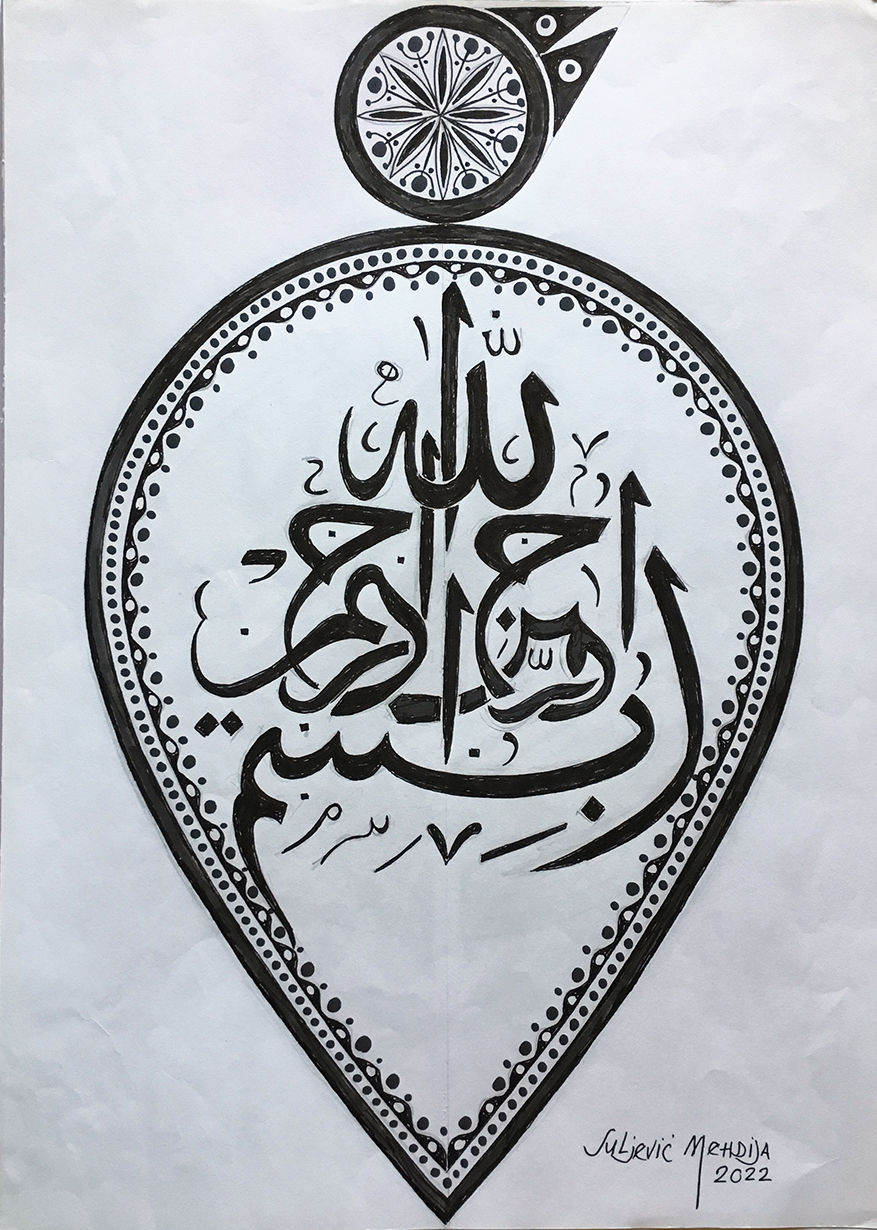 بسم الله الرحمن الرحيم
Suljević Mehdija
2022